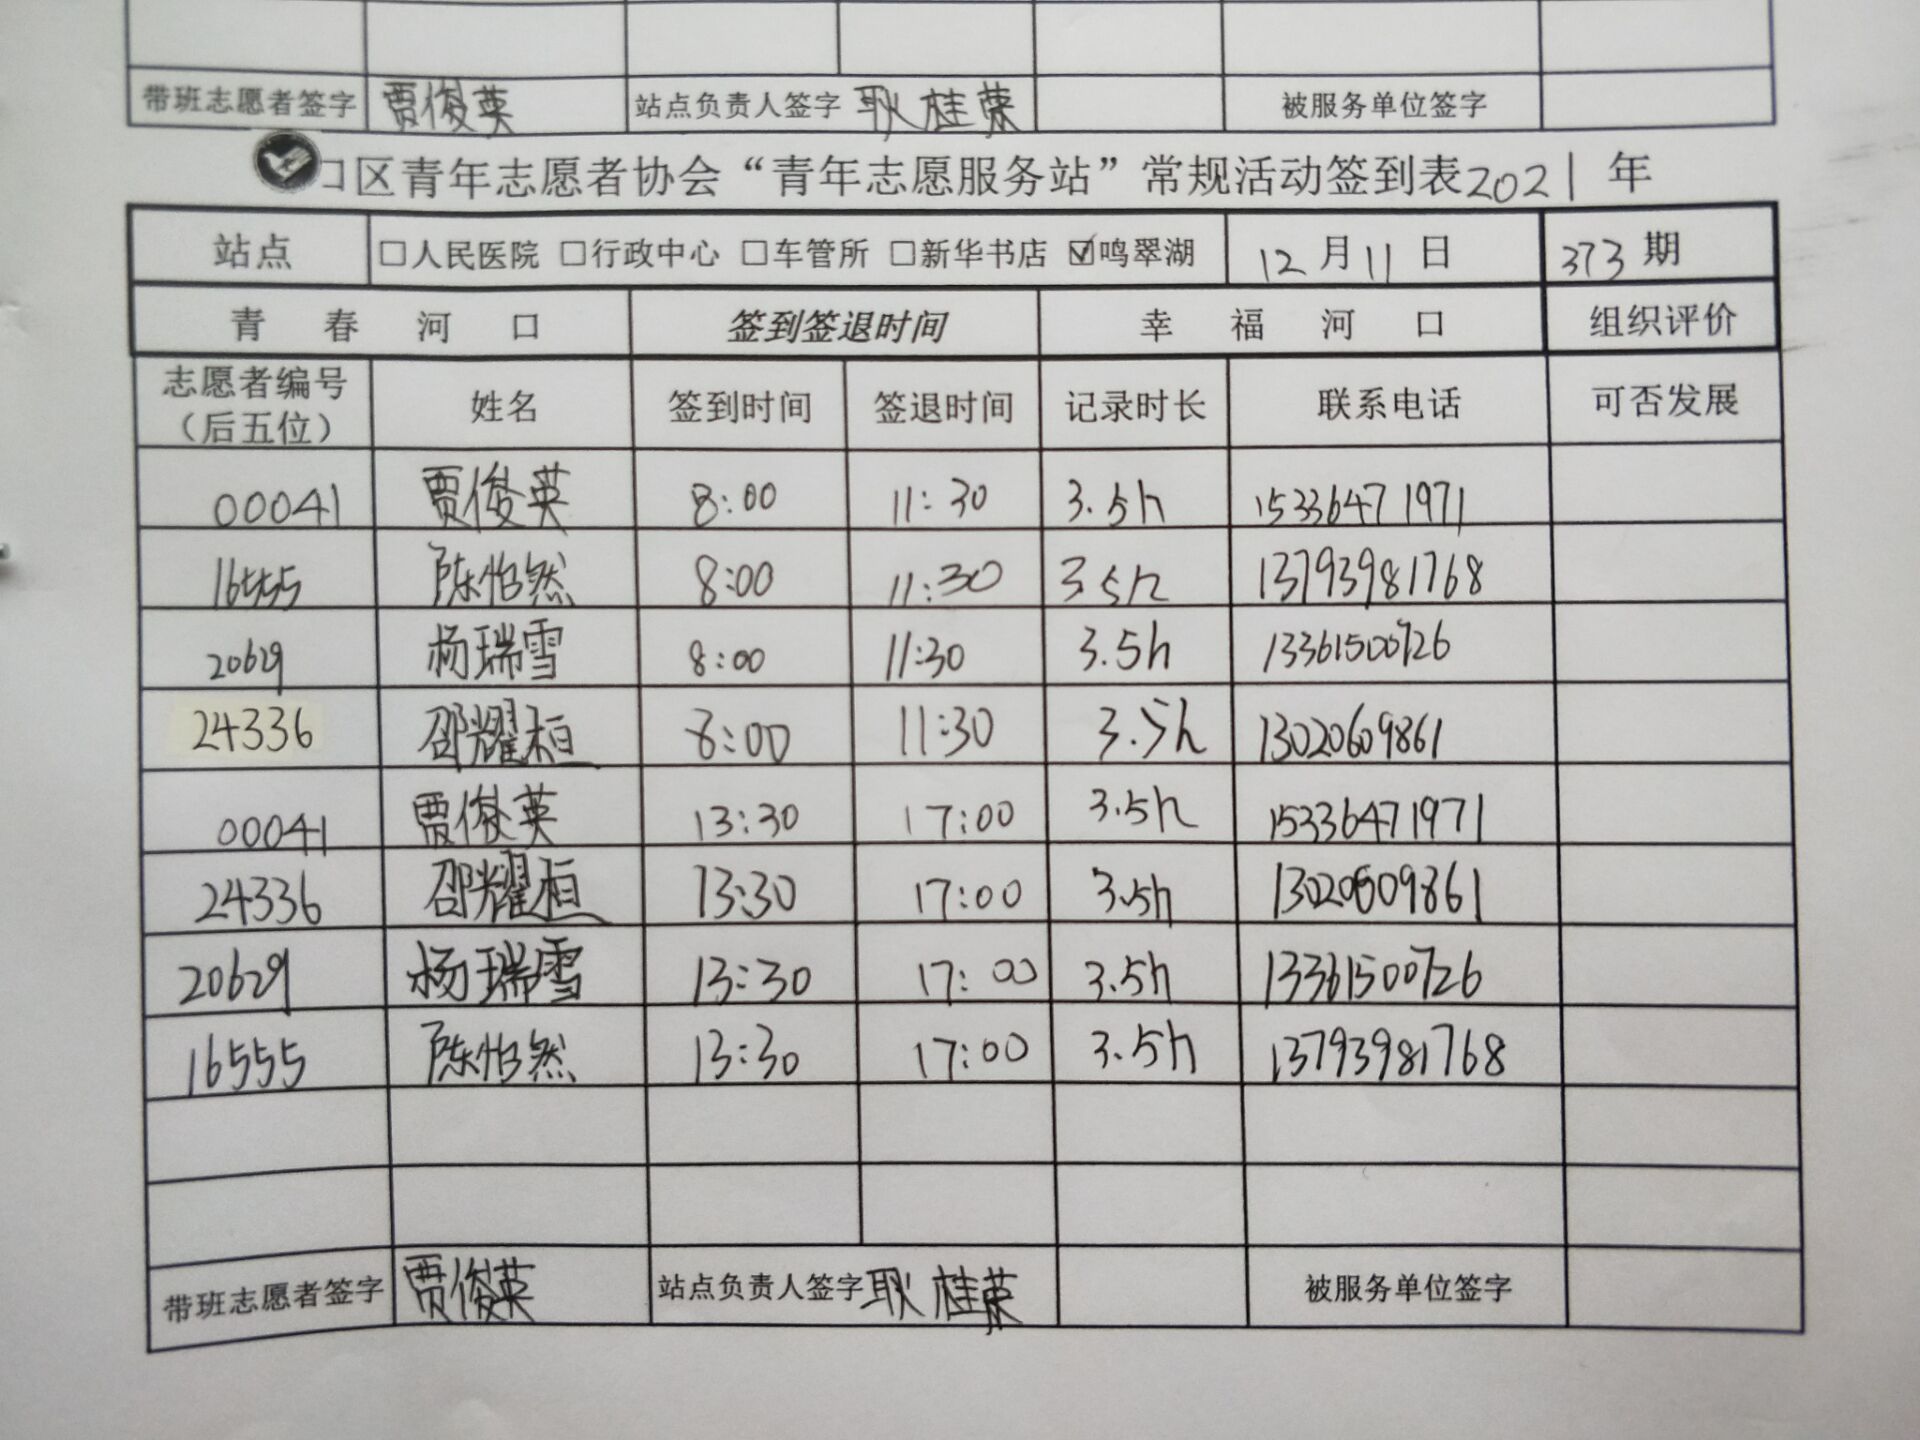 带班志愿者签字 贾俊英 站点负责人签字 耿桂荣 被服务单位签字
口区青年志愿者协会“青年志愿服务站”常规活动签到表2021年
站点 □人民医院 □行政中心 □车管所 □新华书店 ☑鸣翠湖 12月11日 373期
青春河口 签到签退时间 幸福河口 组织评价
志愿者编号 姓名 签到时间 签退时间 记录时长 联系电话 可否发展
（后五位）
00041 贾俊英 8:00 11:30 3.5h 15336471971
16555 陈怡然 8:00 11:30 3.5h 13793981768
20629 杨瑞雪 8:00 11:30 3.5h 13361500726
24336 邵耀桓 8:00 11:30 3.5h 13020609861
00041 贾俊英 13:30 17:00 3.5h 15336471971
24336 邵耀桓 13:30 17:00 3.5h 13020609861
20629 杨瑞雪 13:30 17:00 3.5h 13361500726
16555 陈怡然 13:30 17:00 3.5h 13793981768
带班志愿者签字 贾俊英 站点负责人签字 耿桂荣 被服务单位签字